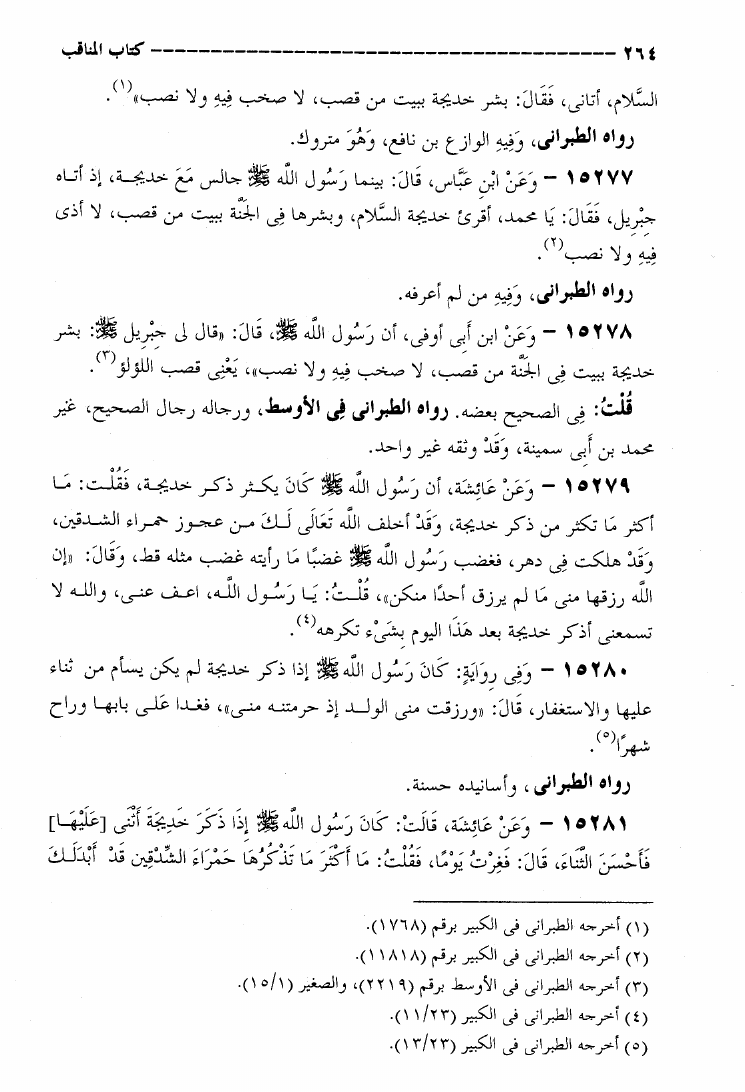 ٢٦٤ ---------------------------------------- كتاب المناقب
السَّلام، أتانى، فَقَالَ: بشر خديجة ببيت من قصب، لا صخب فِيهِ ولا نصب»(١).
رواه الطبرانى، وَفِيهِ الوازع بن نافع، وَهُوَ متروك.
١٥٢٧٧ – وَعَنْ ابْنِ عَبَّاس، قَالَ: بينما رَسُول اللَّه ﷺ جالس مَعَ خديجـة، إذ أتـاه
جبْرِيل، فَقَالَ: يَا محمد، أقرئ خديجة السَّلام، وبشرها فِى الجَنَّة ببيت من قصب، لا أذى
فِيهِ ولا نصب(٢).
رواه الطبرانى، وَفِيهِ من لم أعرفه.
١٥٢٧٨ – وَعَنْ ابن أَبِى أوفى، أن رَسُول اللَّه ﷺ، قَالَ: «قال لى جبْرِيل ﷺ: بشر
خديجة ببيت فِى الجَنَّة من قصب، لا صخب فِيهِ ولا نصب»، يَعْنِى قصب اللؤلؤ(٣).
قُلْتُ: فِى الصحيح بعضه. رواه الطبرانى فِى الأوسط، ورجاله رجال الصحيح، غير
محمد بن أَبِى سمينة، وَقَدْ وثقه غير واحد.
١٥٢٧٩ – وَعَنْ عَائِشَة، أن رَسُول اللَّه ﷺ كَانَ يكـثر ذكـر خديجـة، فَقُلْـت: مَـا
أكثر مَا تكثر من ذكر خديجة، وَقَدْ أخلف اللَّه تَعَالَى لَـكَ مـن عجـوز حمـراء الشـدقين،
وَقَدْ هلكت فِى دهر، فغضب رَسُول اللَّه ﷺ غضبًا مَا رأيته غضب مثله قط، وَقَالَ: «إن
اللَّه رزقها منى مَا لم يرزق أحدًا منكن»، قُلْـتُ: يَـا رَسُـول اللَّـه، اعـف عنـى، واللـه لا
تسمعنى أذكر خديجة بعد هَذَا اليوم بشَىْء تكرهه(٤).
١٥٢٨٠ – وَفِى رِوَايَةٍ: كَانَ رَسُول اللَّه ﷺ إذا ذكر خديجة لم يكن يسأم من ثناء
عليها والاستغفار، قَالَ: «ورزقت منى الولـد إذ حرمتنـه منـى»، فغـدا عَلـى بابهـا وراح
شهرًا(٥).
رواه الطبرانى، وأسانيده حسنة.
١٥٢٨١ – وَعَنْ عَائِشَة، قَالَتْ: كَانَ رَسُول اللَّه ﷺ إِذَا ذَكَرَ خَدِيجَةَ أَثْنَى [عَلَيْهَـا]
فَأَحْسَنَ الثَّنَاءَ، قَالَ: فَغِرْتُ يَوْمًا، فَقُلْتُ: مَا أَكْثَرَ مَا تَذْكُرُهَا حَمْرَاءَ الشِّدْقِينِ قَدْ أَبْدَلَـكَ
(١) أخرجه الطبرانى فى الكبير برقم (١٧٦٨).
(٢) أخرجه الطبرانى فى الكبير برقم (١١٨١٨).
(٣) أخرجه الطبرانى فى الأوسط برقم (٢٢١٩)، والصغير (١٥/١).
(٤) أخرجه الطبرانى فى الكبير (١١/٢٣).
(٥) أخرجه الطبرانى فى الكبير (١٣/٢٣).